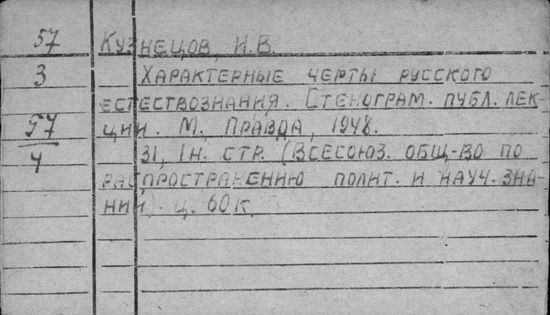 57 Кузнецов, И.В.
3 Характерные черты русского
естествознания. Стенограм. публ. лек-
57 ции. М. Правда, 1948.
4 31, 1н. стр. (Всесоюз. общ-во по
распространению полит. и науч. зна-
ний). ц. 60 к.